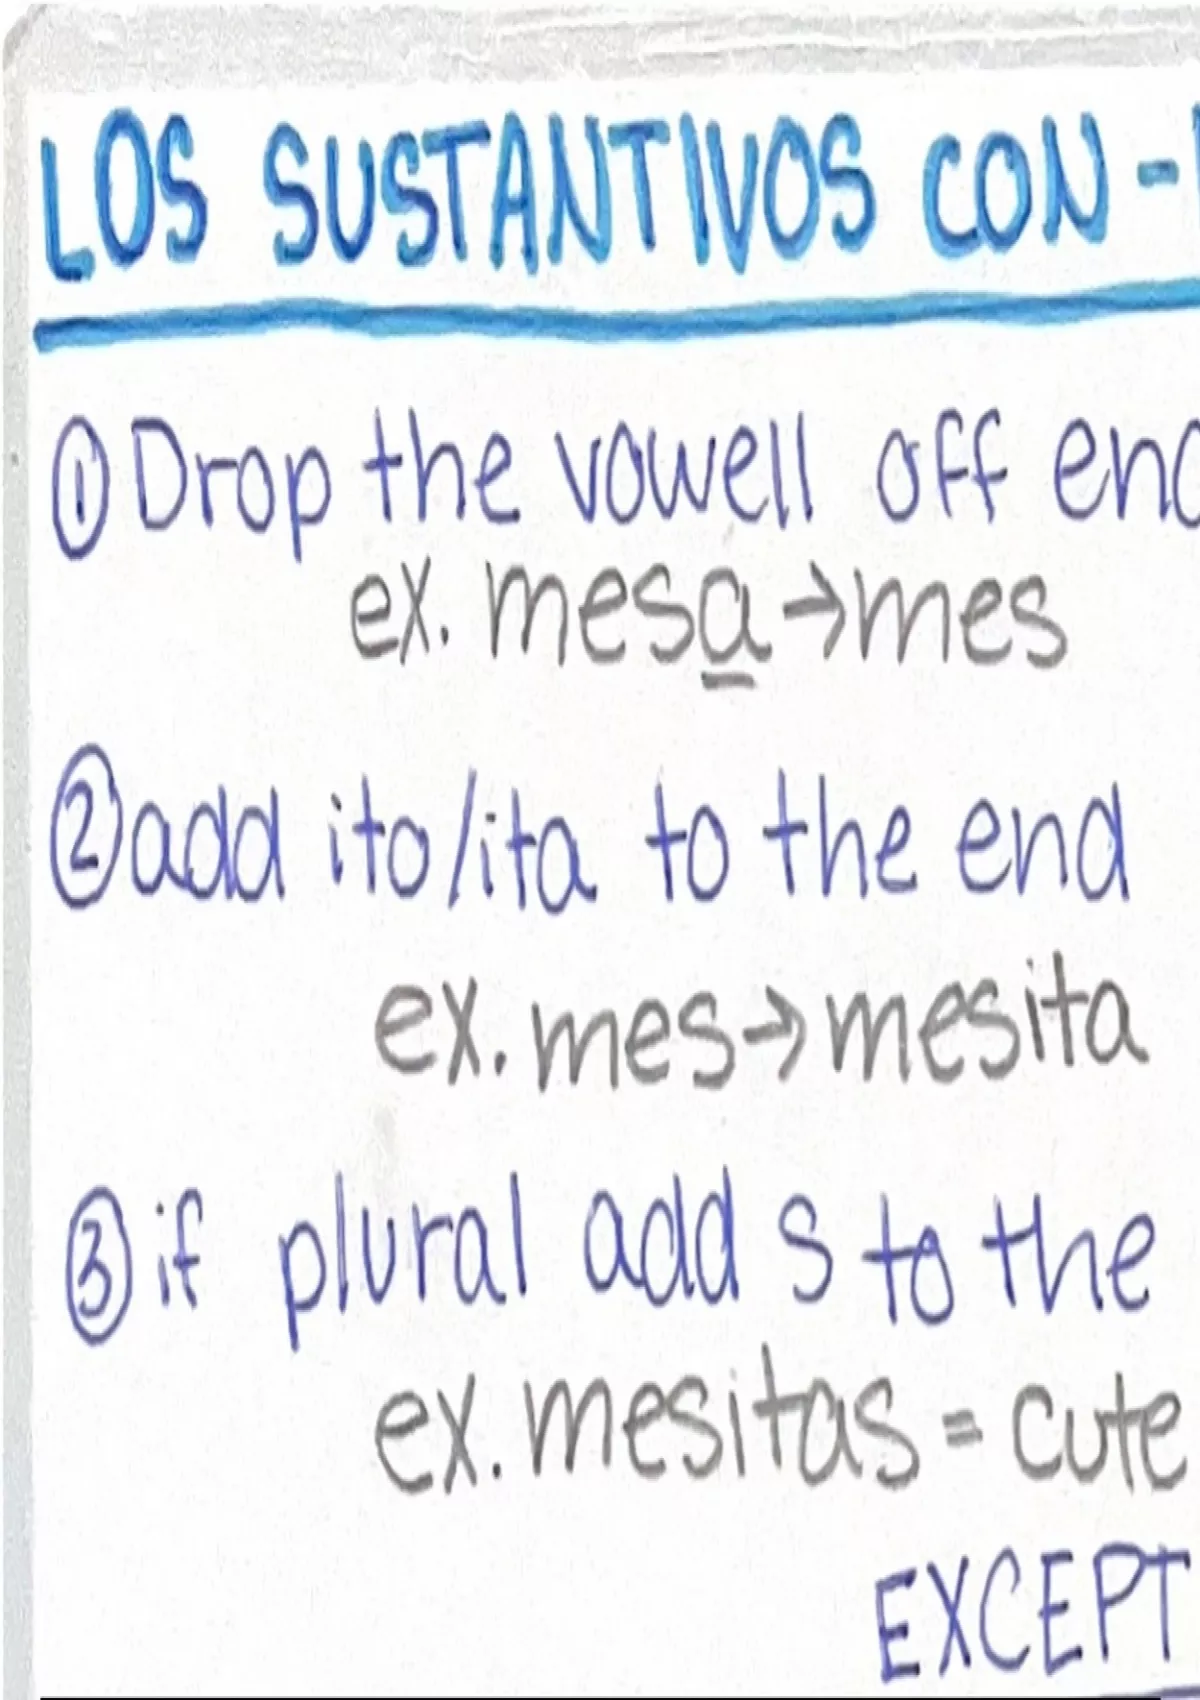 LOS SUSTANTIVOS CON -
① Drop the vowell off end
ex. mesa → mes
② add ito/ita to the end
ex. mes → mesita
③ if plural add s to the
ex. mesitas = cute
EXCEPT